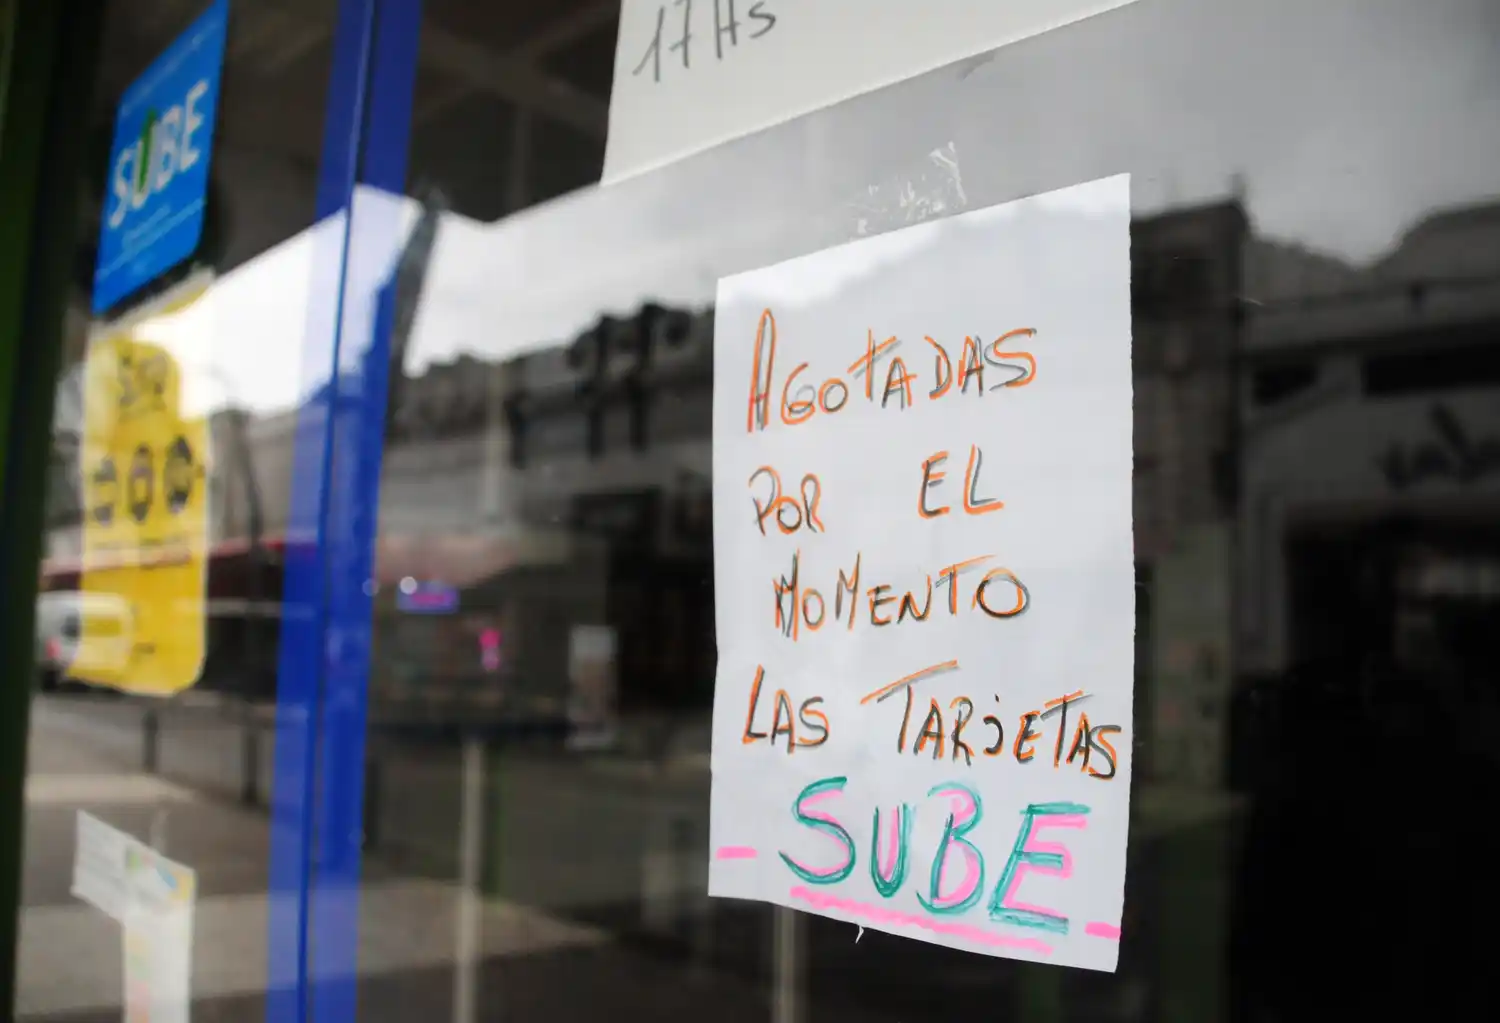 17 Hs
SUBE
AGOTADAS
POR EL
MOMENTO
LAS TARJETAS
- SUBE -